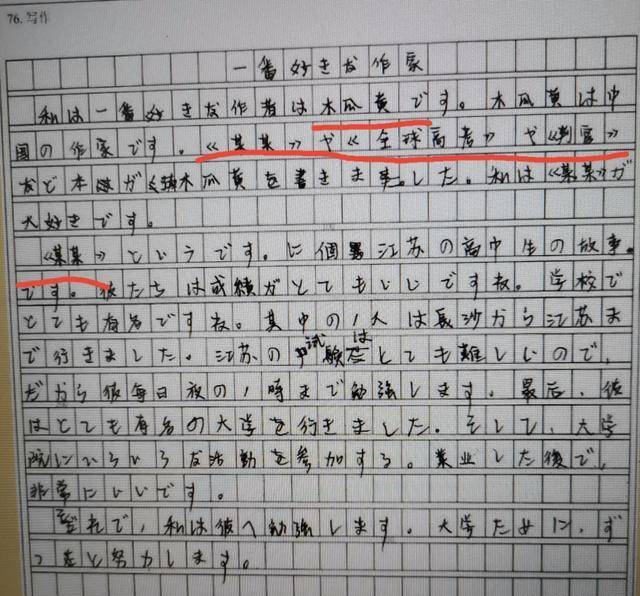 76. 写作
一番好きな作家
私は一番好きな作者は木瓜黄です。木瓜黄は中
国の作家です。《某某》や《全球高考》や《判官》
など本が木瓜黄を書きました。私は《某某》が
大好きです。
《某某》というです。に個江苏の高中生の故事。
です。彼たちは成績がとてもいいですね。学校で
とても有名ですね。其中の1人は長沙から江苏ま
で行きました。江苏の試験はとても難しいので、
だから彼毎日夜の1時まで勉強します。最后、彼
はとても有名の大学を行きました。そして、大学
院にいろいろな活動を参加する。業业した後で、
非常にいいです。
それで、私は彼へ勉強します。大学ために、ず
っと努力します。